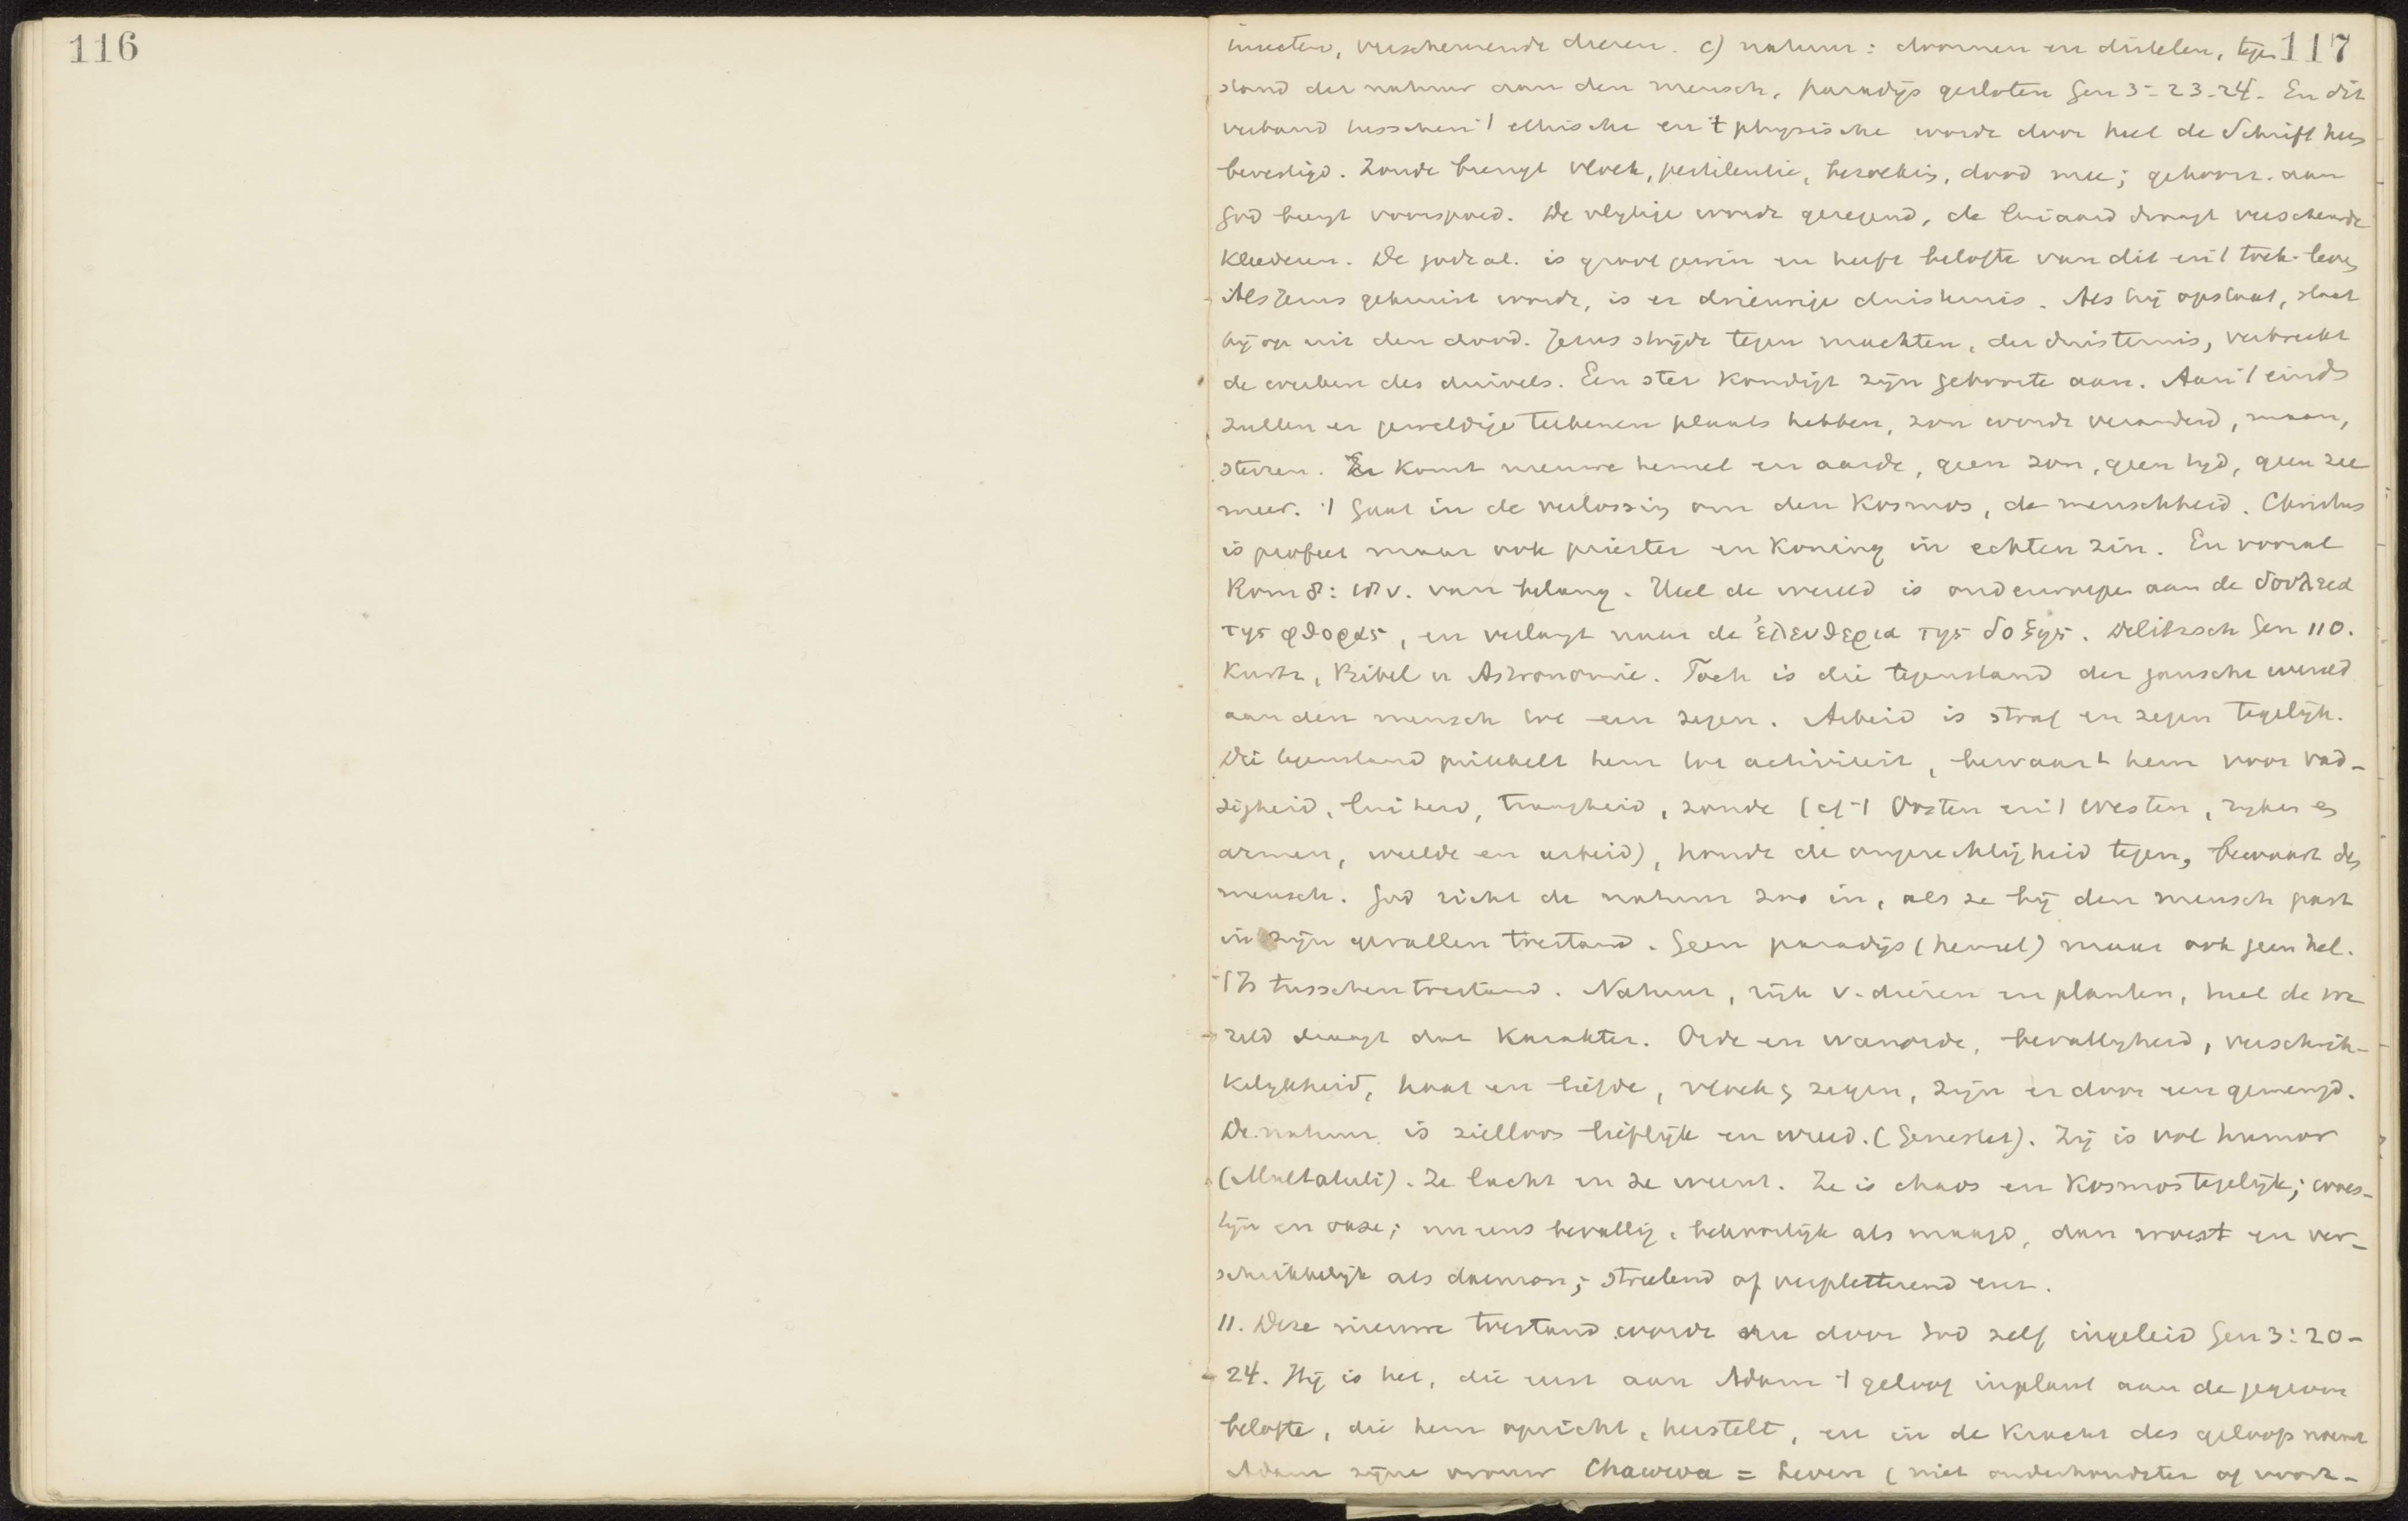 116
117
insecten, verscheurende dieren. c) natuur: doornen en distelen, tegen
stand der natuur aan den mensch, paradijs gesloten Gen 3:23.24. En dit
verband tusschen 't ethische en 't physische wordt door heel de Schrift heen
bevestigd. Zonde brengt vloek, pestilentie, bezoeking, dood mee; gehoorz. aan
God brengt voorspoed. De vlijtige wordt gezegend, de luiaard draagt verscheurde
kleederen. De godzal. is groot gewin en heeft belofte van dit en 't toek. leven
Als Jezus gekruist wordt, is er drieurige duisternis. Als hij opstaat, staat
hij op uit den dood. Jezus strijdt tegen machten, der duisternis, verbreekt
de werken des duivels. Een ster kondigt zijn geboorte aan. Aan 't einde
zullen er geweldige teekenen plaats hebben, zon wordt veranderd, maan,
sterren. Er komt nieuwe hemel en aarde, geen zon, geen tijd, geen zee
meer. 't Gaat in de verlossing om den Kosmos, de menschheid. Christus
is profeet maar ook priester en koning in echten zin. En vooral
Rom 8: 19 v. van belang. Heel de wereld is onderworpen aan de δουλεια
της φθορας, en verlangt naar de ἐλευθερια της δοξης. Delitzsch Gen 110.
Kurtz, Bibel u Astronomie. Toch is die tegenstand der gansche wereld
aan den mensch tot een zegen. Arbeid is straf en zegen tegelijk.
Die tegenstand prikkelt hem tot activiteit, bewaart hem voor vad-
zigheid, luiheid, traagheid, zonde (cf 't Oosten en 't Westen, rijken en
armen, weelde en arbeid), houdt de ongerechtigheid tegen, bewaart den
mensch. God richt de natuur zoo in, als ze bij den mensch past
in zijn gevallen toestand. Geen paradijs (hemel) maar ook geen hel.
't Is tusschentoestand. Natuur, rijk v. dieren en planten, heel de we
reld draagt dat karakter. Orde en wanorde, bevalligheid, verschrik-
kelijkheid, haat en liefde, vloek en zegen, zijn er door een gemengd.
De natuur is zielloos lieflijk en wreed. (Genestet). Zij is vol humor
(Multatuli). Ze lacht en ze weent. Ze is chaos en Kosmos tegelijk; woes-
tijn en oase; nu eens bevallig, bekoorlijk als maagd, dan woest en ver-
schrikkelijk als daemon; streelend of verpletterend enz.
11. Deze nieuwe toestand wordt nu door God zelf ingeleid Gen 3:20-
24. Hij is het, die eerst aan Adam 't geloof inplant aan de gegeven
belofte, die hem opricht, herstelt, en in de kracht des geloofs noemt
Adam zijne vrouw Chawwa = Leven (niet onderhoudster of voort-